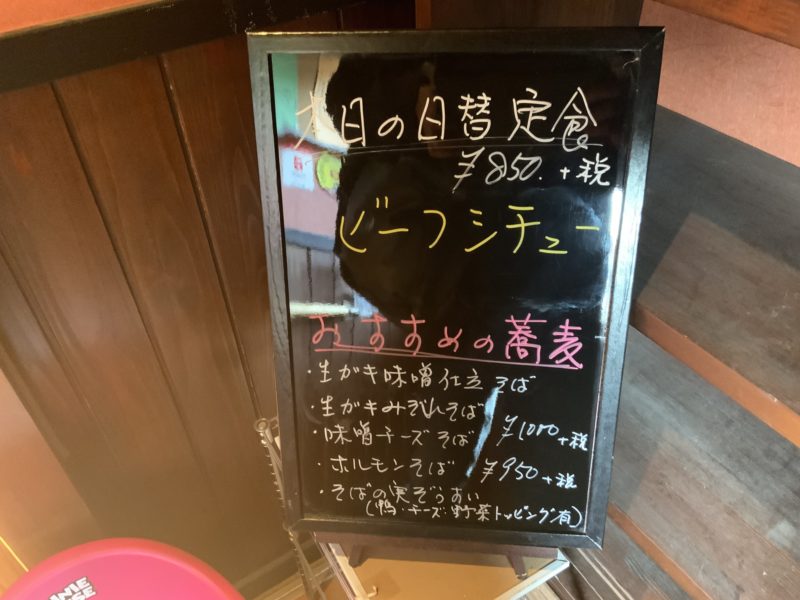 本日の日替定食
¥850.+税
ビーフシチュー
おすすめの蕎麦
・生ガキ味噌仕立そば
・生ガキみぞれそば
・味噌チーズそば ¥1000+税
・ホルモンそば ¥950+税
・そばの実ぞうすい
(鴨・チーズ・野菜トッピング有)